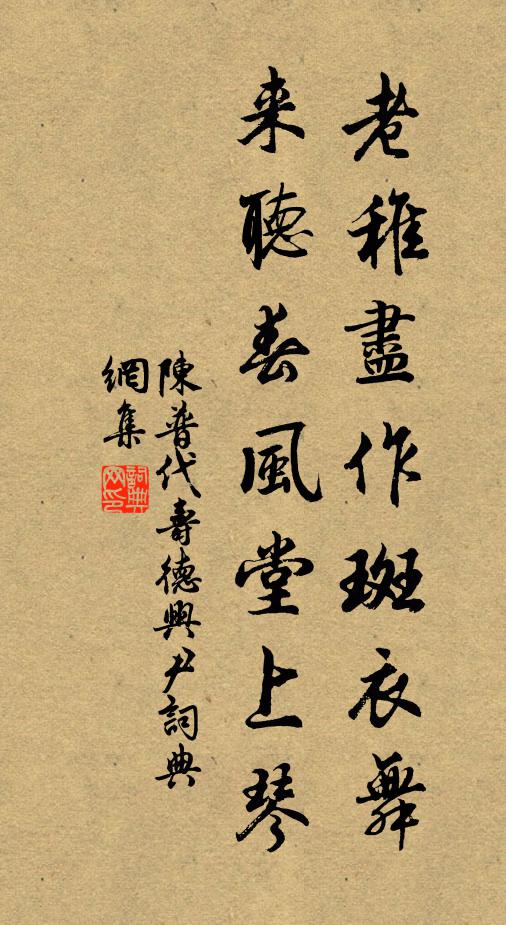 老稚盡作斑衣舞
来聽春風堂上琴
陳普代壽德興尹詞典
網集
詞典
网印